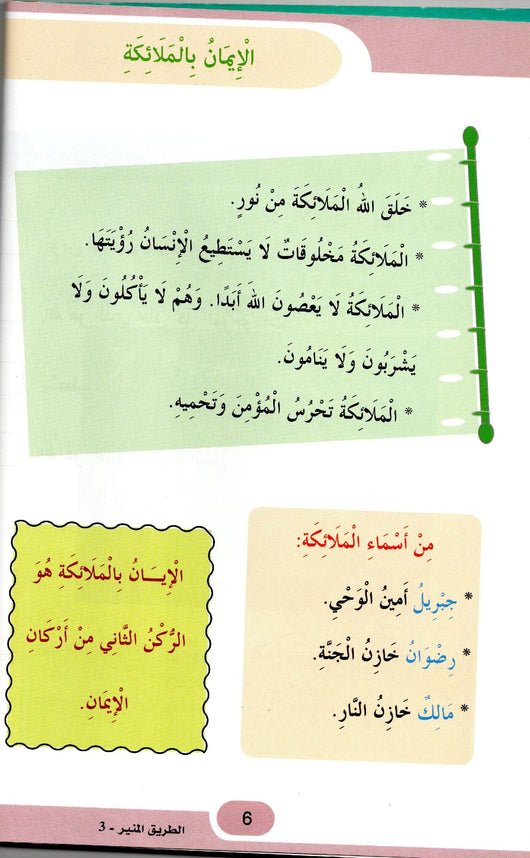 الْإِيمَانُ بِالْمَلَائِكَةِ
* خَلَقَ اللهُ الْمَلَائِكَةَ مِنْ نُورٍ.
* الْمَلَائِكَةُ مَخْلُوقَاتٌ لَا يَسْتَطِيعُ الْإِنْسَانُ رُؤْيَتَهَا.
* الْمَلَائِكَةُ لَا يَعْصُونَ اللهَ أَبَدًا. وَهُمْ لَا يَأْكُلُونَ وَلَا
يَشْرَبُونَ وَلَا يَنَامُونَ.
* الْمَلَائِكَةُ تَحْرُسُ الْمُؤْمِنَ وَتَحْمِيهِ.
مِنْ أَسْمَاءِ الْمَلَائِكَةِ:
* جِبْرِيلُ أَمِينُ الْوَحْيِ.
* رِضْوَانُ خَازِنُ الْجَنَّةِ.
* مَالِكٌ خَازِنُ النَّارِ.
الْإِيمَانُ بِالْمَلَائِكَةِ هُوَ
الرُّكْنُ الثَّانِي مِنْ أَرْكَانِ
الْإِيمَانِ.
6
الطريق المنير - 3